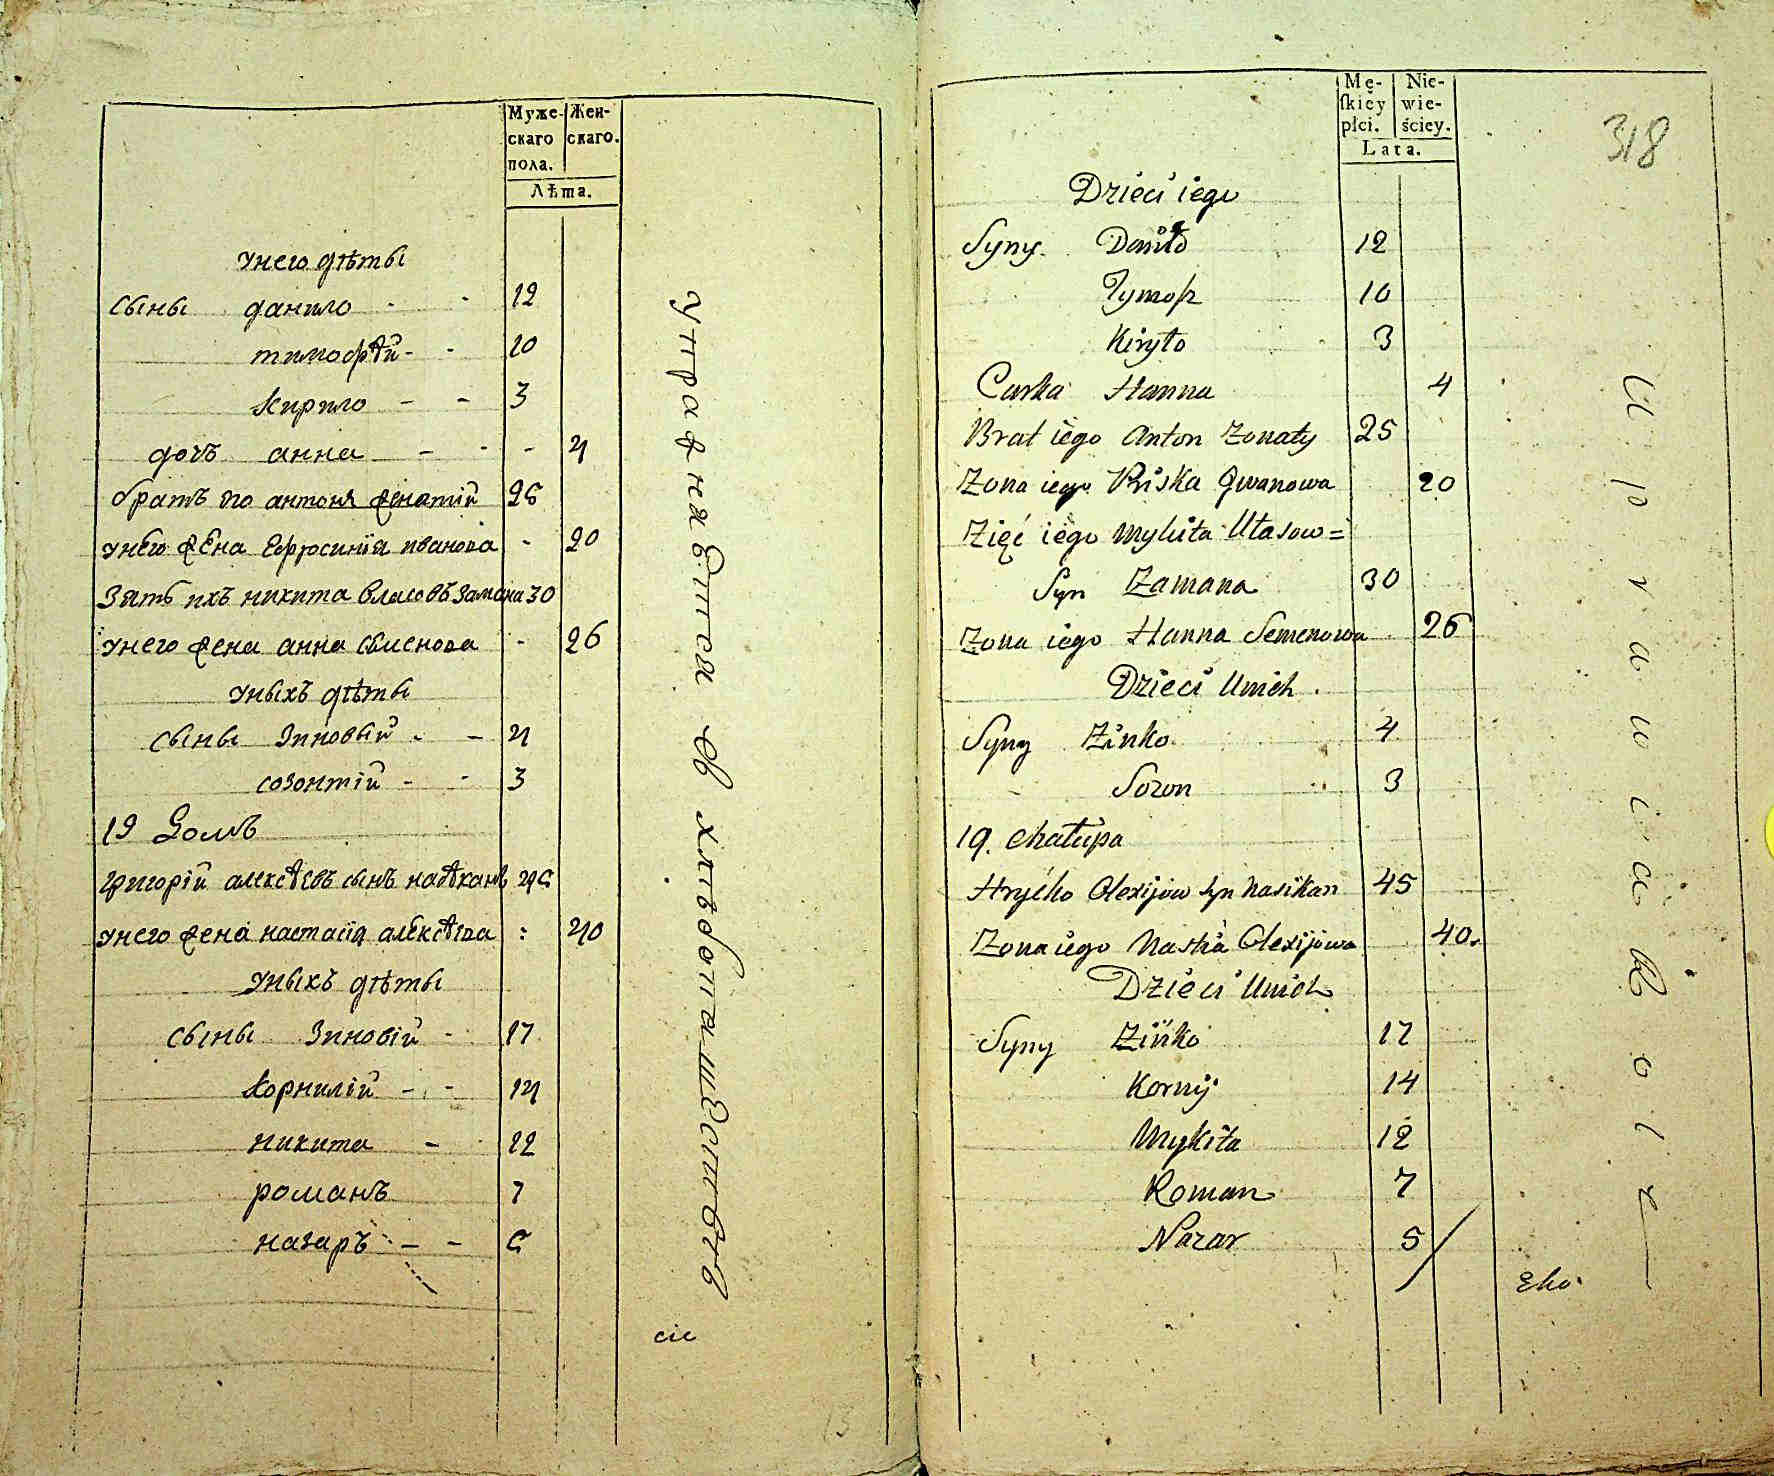 Муже-
скаго
пола.
Жен-
скаго.
Лѣта.
унего дѣты
сыны данило - - 12
тимофѣй - - 10
кирило - - 3
дочъ анна - - - 4
братъ его антонъ женатій 25
унего жена Ефросинїя иванова - 20
Зять ихъ никита власовъ замана 30
унего жена анна семенова - 26
уныхъ дѣты
сыны Зіновъій - - 4
созонтій - - 3
19 Домъ
григорій алексѣевъ сынъ насѣканъ 45
унего жена настасїя алексѣева : 40
уныхъ дѣты
сыны Зиновій - 17
корнилій - - 14
никита - 12
романъ 7
назаръ - - 5
упражняется въ хлѣбопашествѣ
сіе
13
Mę-
skiey
płci.
Nie-
wie-
ściey.
Lata.
318
Dzieci iego
Syny. Daniło 12
Tymofi 10
Kiryło 3
Curka Hanna 4
Brat iego Anton Zonaty 25
Zona iego Priska Jwanowa 20
Zięć iego Mykita Ułasow=
Syn Zamana 30
Zona iego Hanna Semenowa 26
Dzieci Unich.
Syny Zinko 4
Sozon 3
19. Chałupa
Hryćko Olexijow syn Nasikan 45
Zona iego Nastia Olexijowa 40.
Dzieci Unich
Syny Zinko 17
Kornij 14
Mykita 12
Roman 7
Nazar 5
Uprawia Rolę
Eko.